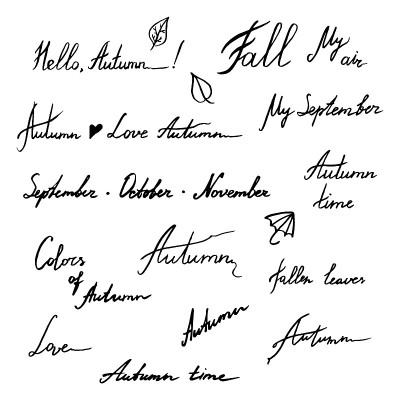 Hello, Autumn !
Fall
My
air
Autumn ♥ Love Autumn
My September
September · October · November
Autumn
time
Colors
of
Autumn
Autumn
Fallen leaves
Love
Autumn
Autumn
Autumn time